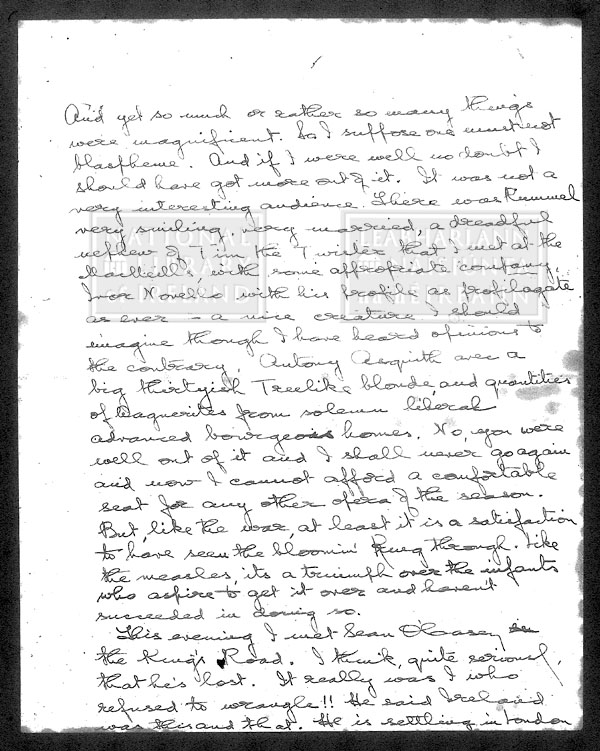 And yet so much or rather so many things
were magnificent. So I suppose one must not
blaspheme. And if I were well no doubt I
should have got more out of it. It was not a
very interesting audience. There was Rummel
very smiling, very married, a dreadful
nephew of Tim the Twister that I met at the
with some appropriate company,
Ivor Novello with his profile as profilagate
as ever – a nice creature I should
imagine though I have heard opinions to
the contrary. Antony Asquith avec a
big thirtyish Treelike blonde, and quantities
of Wagnerites from solemn liberal
advanced bourgeois homes. No, you were
well out of it and I shall never go again
and now I cannot afford a comfortable
seat for any other opera of the season.
But, like the war, at least it is a satisfaction
to have seen the bloomin' Ring through. Like
the measles, its a triumph over the infants
who aspire to get it over and haven't
succeeded in doing so.
This evening I met Sean O'Casey in
the King's Road. I think, quite seriously,
that he's lost. It really was I who
refused to wrangle!! He said Ireland
was this and that. He is settling in London
NATIONAL LIBRARY of IRELAND
LEABHARLANN NÁISIÚNTA na hÉIREANN